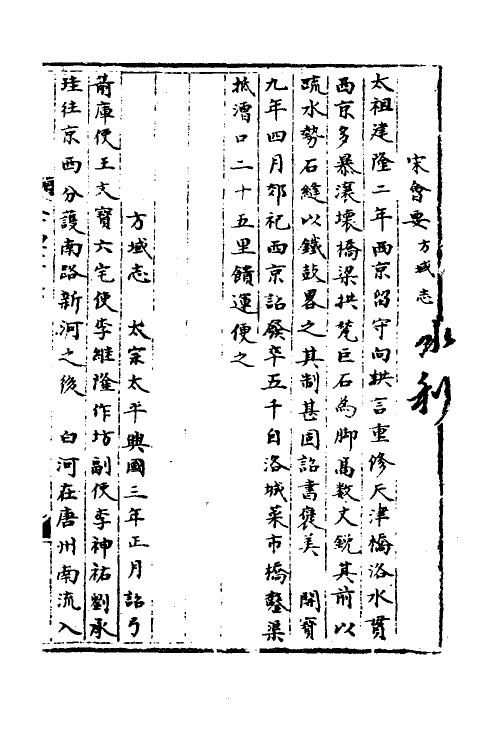 宋會要方域志 水利
太祖建隆二年西京留守向拱言重修天津橋洛水貫
西京多暴漲壞橋梁拱甃巨石為脚高数丈銳其前以
疏水勢石縫以鐵鼓畧之其制甚固詔書襃美 開寶
九年四月郊祀西京詔發卒五千自洛城菜市橋鑿渠
抵漕口二十五里饋運便之
方域志 太宗太平興國三年正月詔弓
箭庫使王文寶六宅使李繼隆作坊副使李神祐劉承
珪往京西分護南路新河之後 白河在唐州南流入